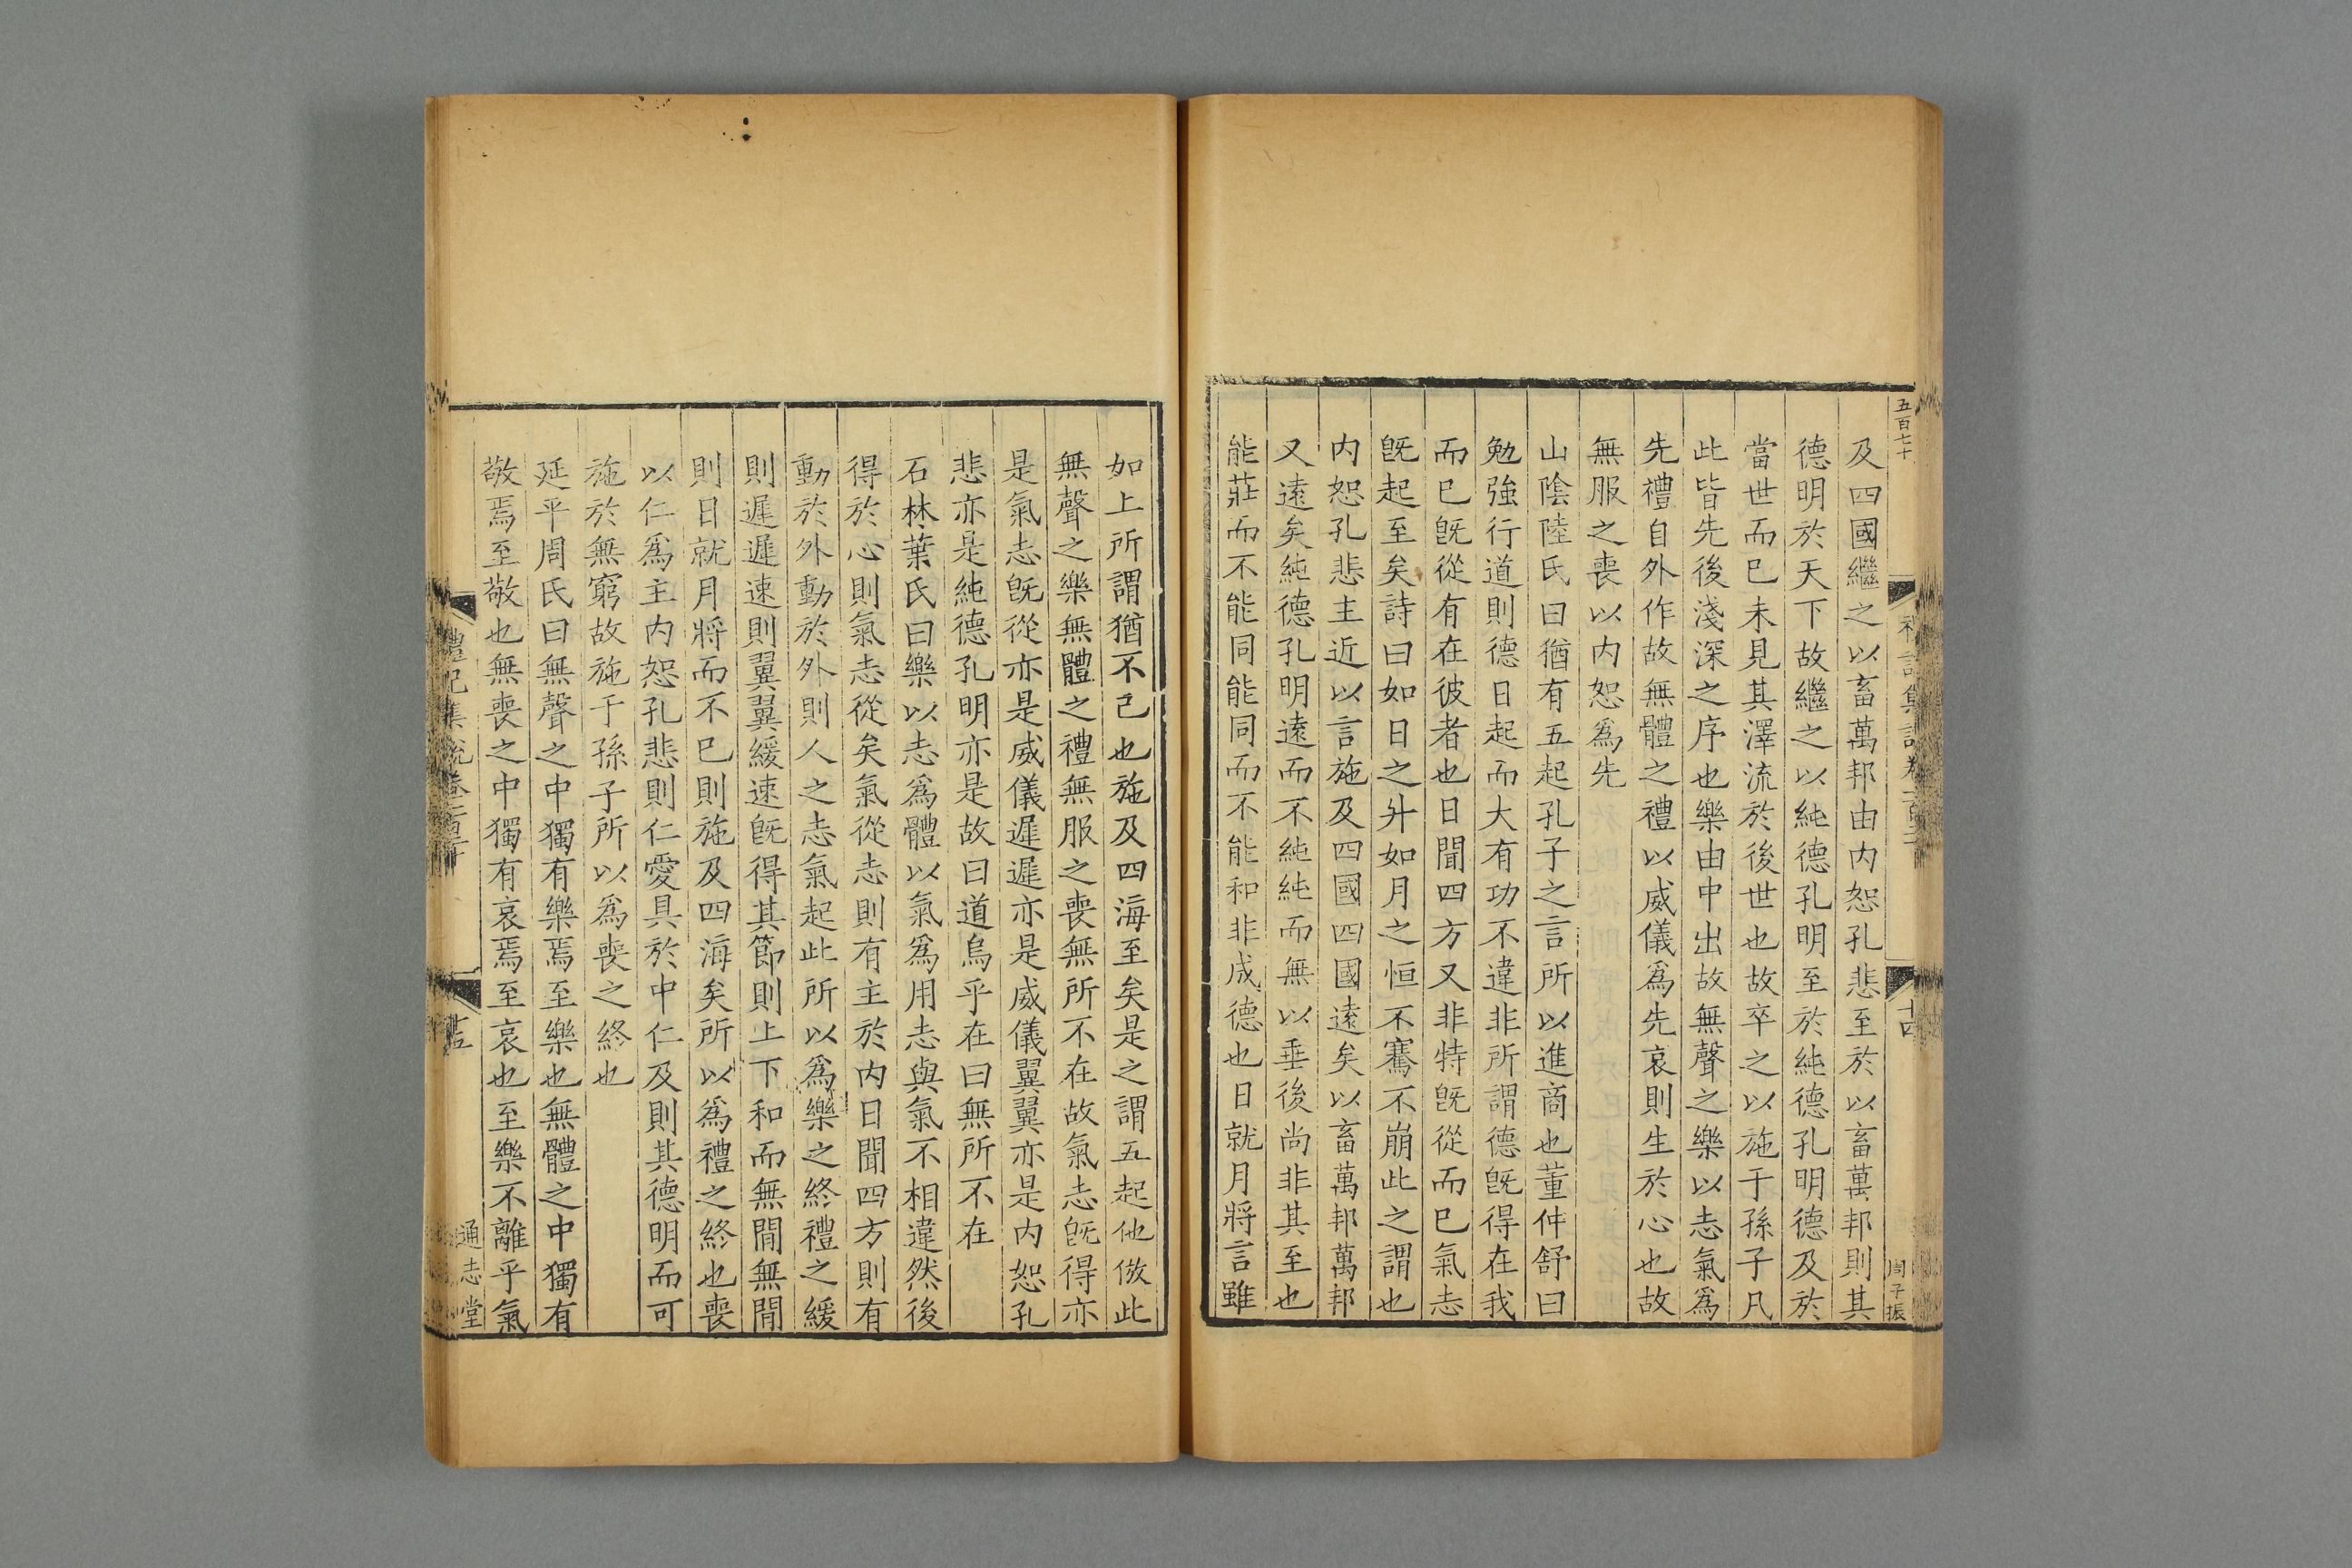 五百七十
十四
周子振
及四國繼之以畜萬邦由内恕孔悲至於以畜萬邦則其
德明於天下故繼之以純德孔明至於純德孔明德及於
當世而已未見其澤流於後世也故卒之以施于孫子凡
此皆先後淺深之序也樂由中出故無聲之樂以志氣爲
先禮自外作故無體之禮以威儀爲先哀則生於心也故
無服之喪以内恕爲先
山陰陸氏曰猶有五起孔子之言所以進商也董仲舒曰
勉強行道則德日起而大有功不違非所謂德旣得在我
而已旣從有在彼者也日聞四方又非特旣從而已氣志
旣起至矣詩曰如日之升如月之恒不騫不崩此之謂也
内恕孔悲主近以言施及四國四國遠矣以畜萬邦萬邦
又遠矣純德孔明遠而不純純而無以垂後尚非其至也
能莊而不能同能同而不能和非成德也日就月將言雖
如上所謂猶不已也施及四海至矣是之謂五起他倣此
無聲之樂無體之禮無服之喪無所不在故氣志旣得亦
是氣志旣從亦是威儀遲遲亦是威儀翼翼亦是内恕孔
悲亦是純德孔明亦是故曰道烏乎在曰無所不在
石林葉氏曰樂以志爲體以氣爲用志與氣不相違然後
得於心則氣志從矣氣從志則有主於内日聞四方則有
動於外動於外則人之志氣起此所以爲樂之終禮之緩
則遲遲速則翼翼緩速旣得其節則上下和而無閒無閒
則日就月將而不已則施及四海矣所以爲禮之終也喪
以仁爲主内恕孔悲則仁愛具於中仁及則其德明而可
施於無窮故施于孫子所以爲喪之終也
延平周氏曰無聲之中獨有樂焉至樂也無體之中獨有
敬焉至敬也無喪之中獨有哀焉至哀也至樂不離乎氣
禮記集說卷
通志堂